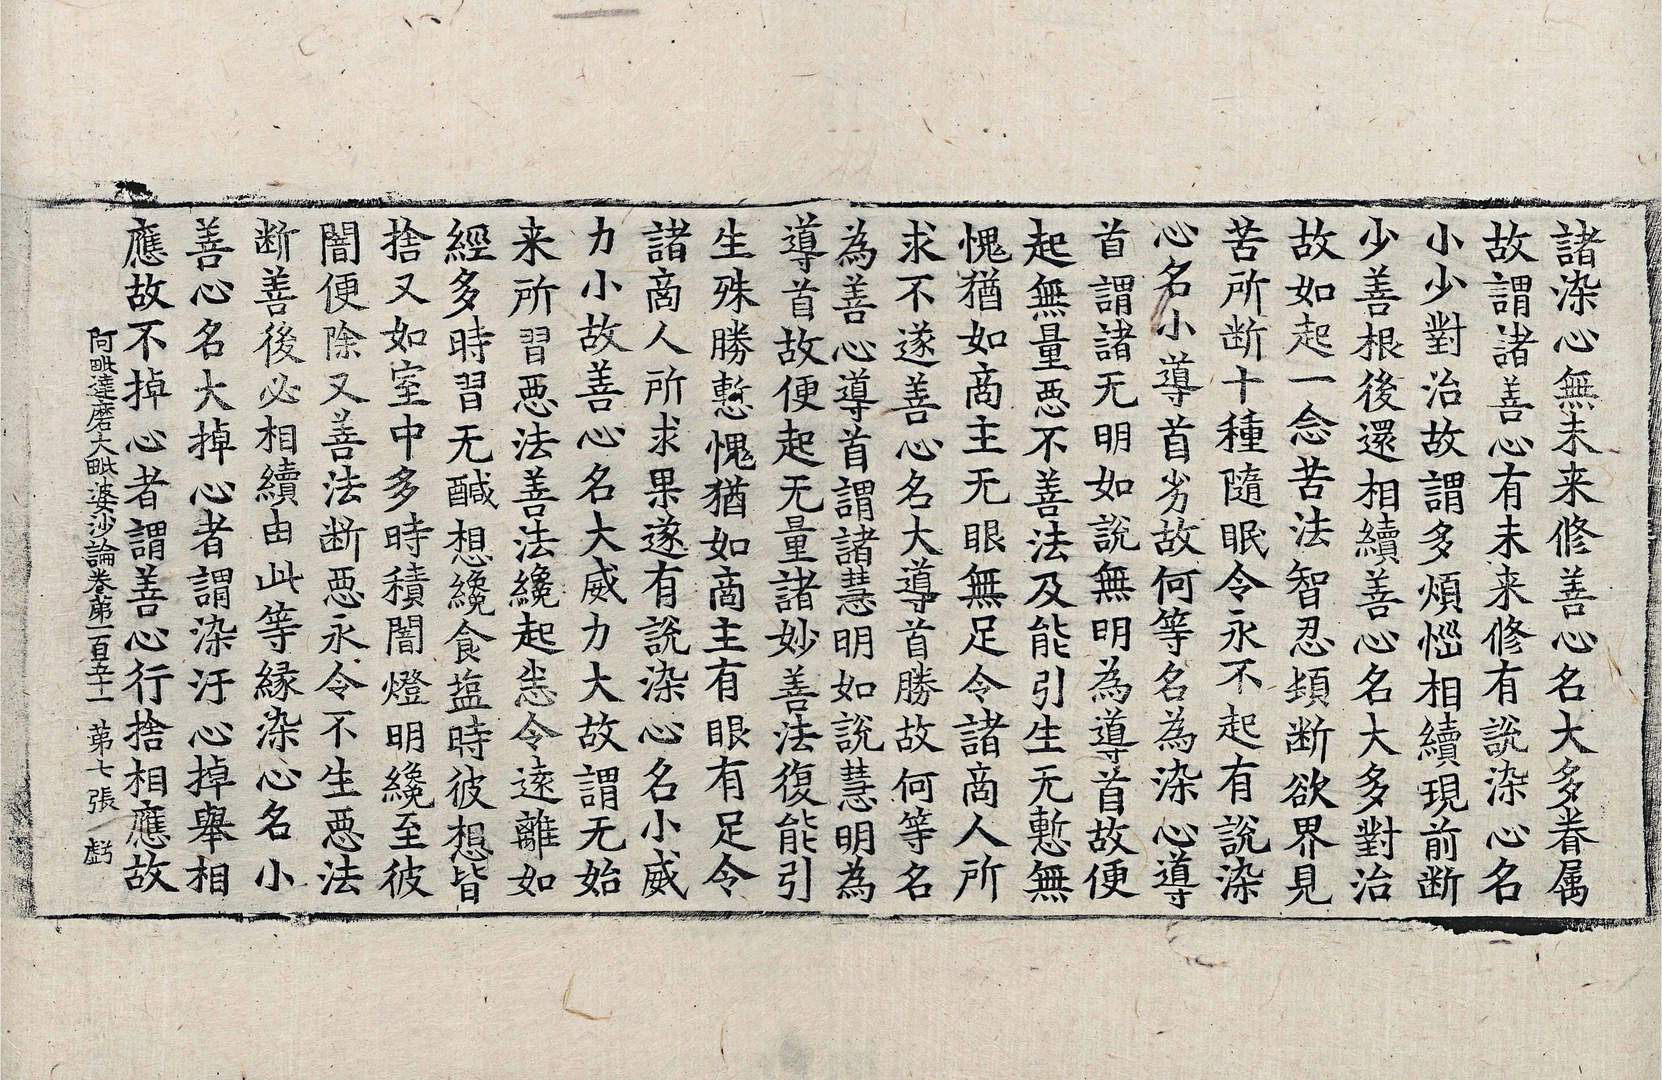 諸染心無未来修善心名大多眷属
故謂諸善心有未来修有說染心名
小少對治故謂多煩惱相續現前断
少善根後還相續善心名大多對治
故如起一念苦法智忍頓断欲界見
苦所断十種隨眠令永不起有說染
心名小導首劣故何等名為染心導
首謂諸无明如說無明為導首故便
起無量惡不善法及能引生无慙無
愧猶如商主无眼無足令諸商人所
求不遂善心名大導首勝故何等名
為善心導首謂諸慧明如說慧明為
導首故便起无量諸妙善法復能引
生殊勝慙愧猶如商主有眼有足令
諸商人所求果遂有說染心名小威
力小故善心名大威力大故謂无始
来所習惡法善法纔起悉令遠離如
經多時習无醎想纔食塩時彼想皆
捨又如室中多時積闇燈明纔至彼
闇便除又善法断惡永令不生惡法
断善後必相續由此等緣染心名小
善心名大掉心者謂染汙心掉舉相
應故不掉心者謂善心行捨相應故
阿毗達磨大毗婆沙論卷第一百五十一 第七張 虧